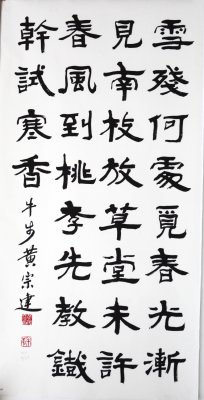 雪殘何處覓春光漸
見南枝放草堂未許
春風到桃李先教鐵
幹試寒香
牛步黄宗建